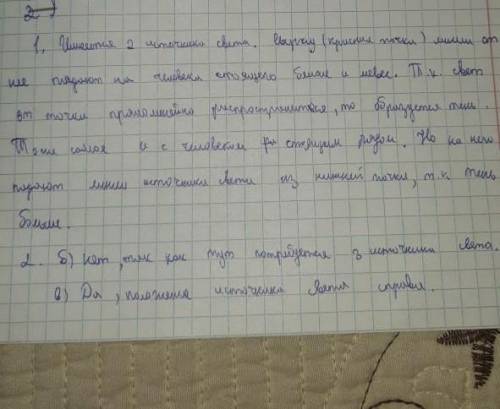 2
1. Имеется 2 источника света. Сверху (красная точка) линии от
нее падают на человека стоящего ближе и левее. Т.к. свет
от точки прямолинейно распространиться, то образуется тень.
Тоже самое и с человеком стоящим рядом. Но на него
падают линии источника света из нижней точки, т.к тень
больше.
2. б) нет, так как тут потребуется 3 источника света.
в) Да, положения источника света справа.